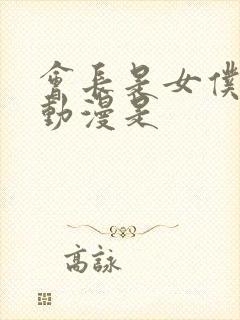 會長是女僕
動漫是
高詠